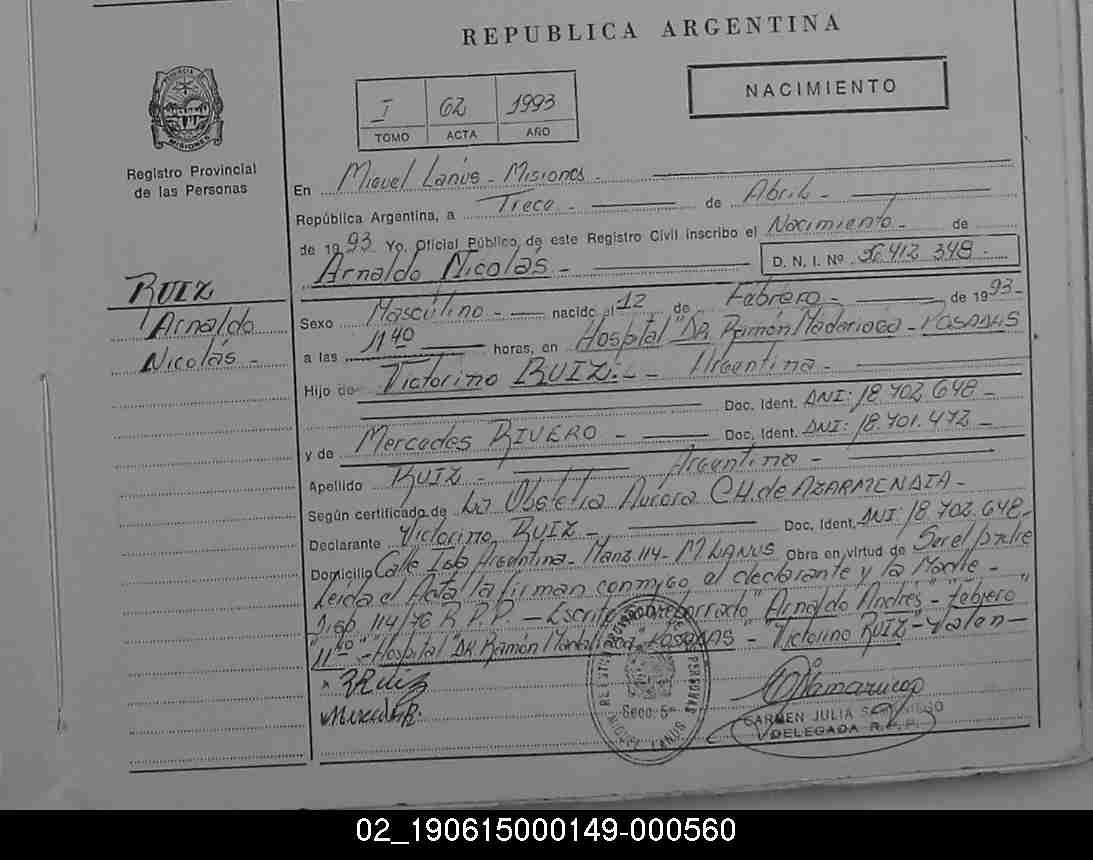 REPUBLICA ARGENTINA
NACIMIENTO
I 62 1993
TOMO ACTA AÑO
MISIONES
Registro Provincial
de las Personas
RUIZ
Arnaldo
Nicolás -
En Miguel Lanús - Misiones -
República Argentina, a Trece - de Abril -
de 1993 Yo, Oficial Público, de este Registro Civil inscribo el Nacimiento - de
Arnaldo Nicolás - D. N. I. Nº 36.412.348 -
Sexo Masculino - nacido el 12 de Febrero - de 1993 -
a las 11 40 horas, en Hospital "DR Ramón Madariaga - POSADAS
Hijo de Victorino RUIZ. - Argentina -
Doc. Ident. DNI: 18.702.648 -
y de Mercedes RIVERO - Doc. Ident. DNI: 18.701.472 -
Argentina -
Apellido RUIZ -
Según certificado de La Obstetra Aurora CH. de AZARMENDIA -
Declarante Victorino RUIZ - Doc. Ident. DNI: 18.702.648 -
Domicilio Calle Isla Argentina - Manz. 114 - M LANUS Obra en virtud de Ser el padre
Leída el Acta la firman conmigo el declarante y la Madre -
Disp 114/76 R.P.P. - Escrito sobreborrado "Arnaldo Andrés" - "Febrero"
"11 40" - "Hospital "DR Ramón Madariaga" POSADAS" - "Victorino RUIZ" - Valen -
VRuiz
CARMEN JULIA
DELEGADA R. P. P.
Secc. 5ª
02_190615000149-000560